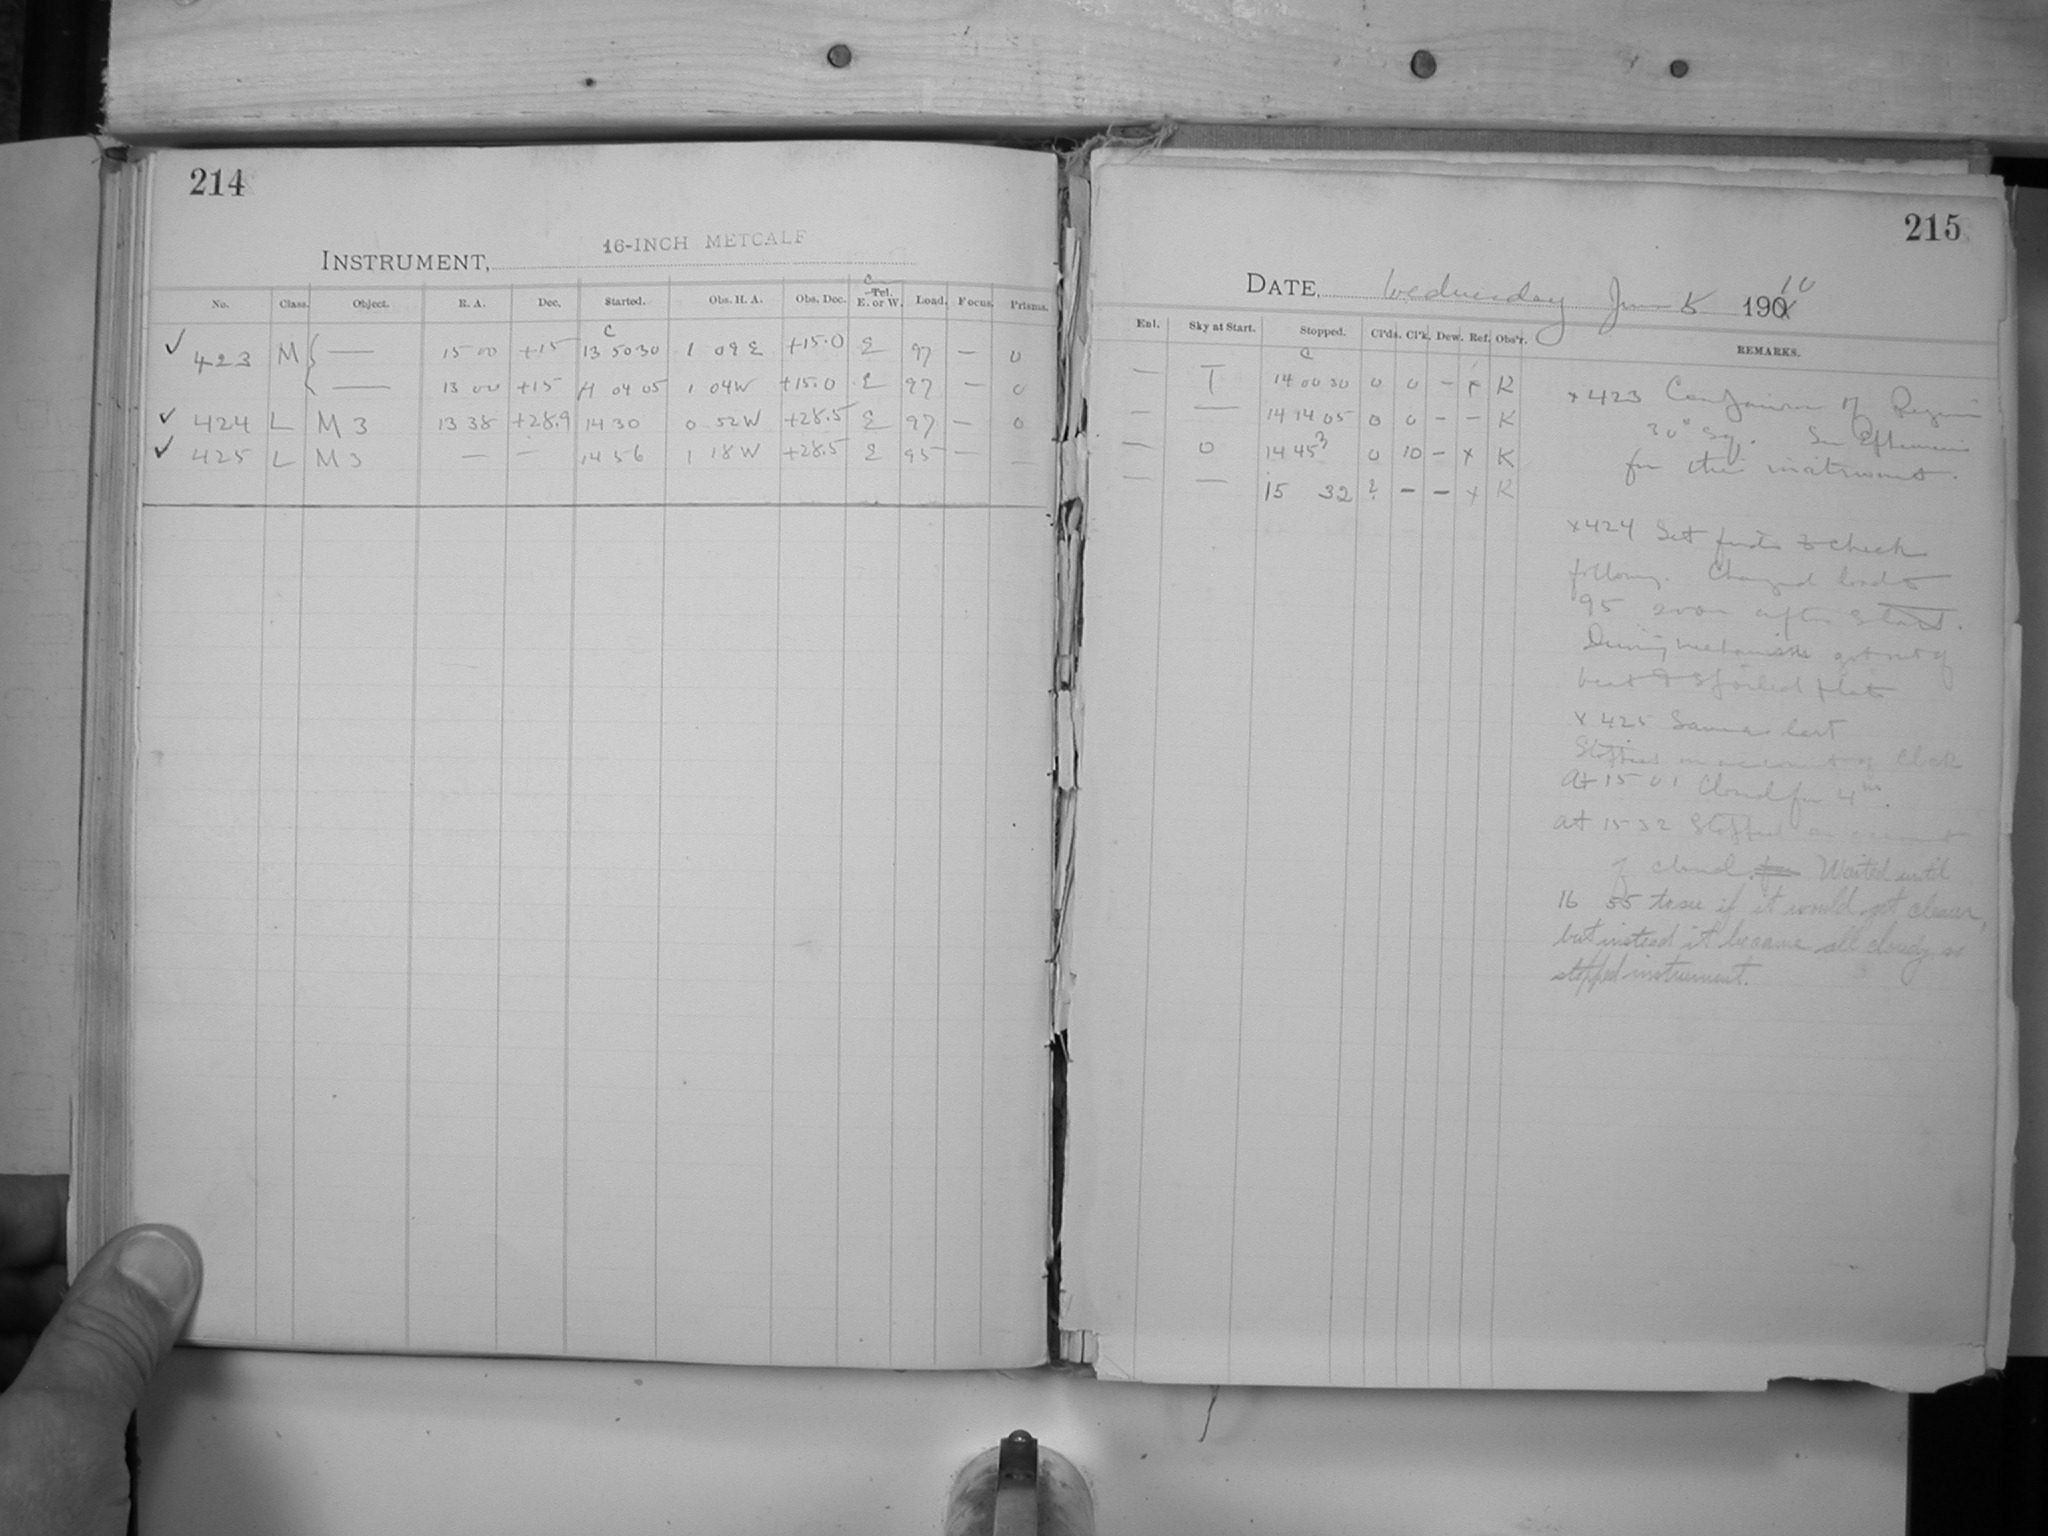 214
INSTRUMENT, 16-INCH METCALF
No. Class. Object. R. A. Dec. Started. Obs. H. A. Obs. Dec. C Tel. E. or W. Load. Focus. Prisms.
✓ 423 M { — 15 00 +15 C 13 50 30 1 09 E +15.0 E 97 — 0
— 13 00 +15 14 04 05 1 04 W +15.0 E 97 — 0
✓ 424 L M 3 13 38 +28.9 14 30 0 52 W +28.5 E 97 — 0
✓ 425 L M 3 — — 14 56 1 18 W +28.5 E 95 — —
215
DATE, Wednesday June 190 10
Enl. Sky at Start. Stopped. Cl'ds. Cl'k. Dew. Ref. Obs'r. REMARKS.
— T C 14 00 30 0 0 — x K
— — 14 14 05 0 0 — — K
— 0 14 45 3 0 10 — x K
— — 15 32 ? — — x K
x 423 Comparison of
30° Sq. See Ephemeris
for other instrument.
x 424 Set to check
following. Changed load to
95 soon after start.
Driving mechanism got out of
beat & spoiled plate
x 425 Same as last
Stopped on account of Clock
At 15 01 Closed for 4m.
at 15 32 Stopped on account
of cloud. Waited until
16 55 to see if it would get clearer,
but instead it became all cloudy so
stopped instrument.